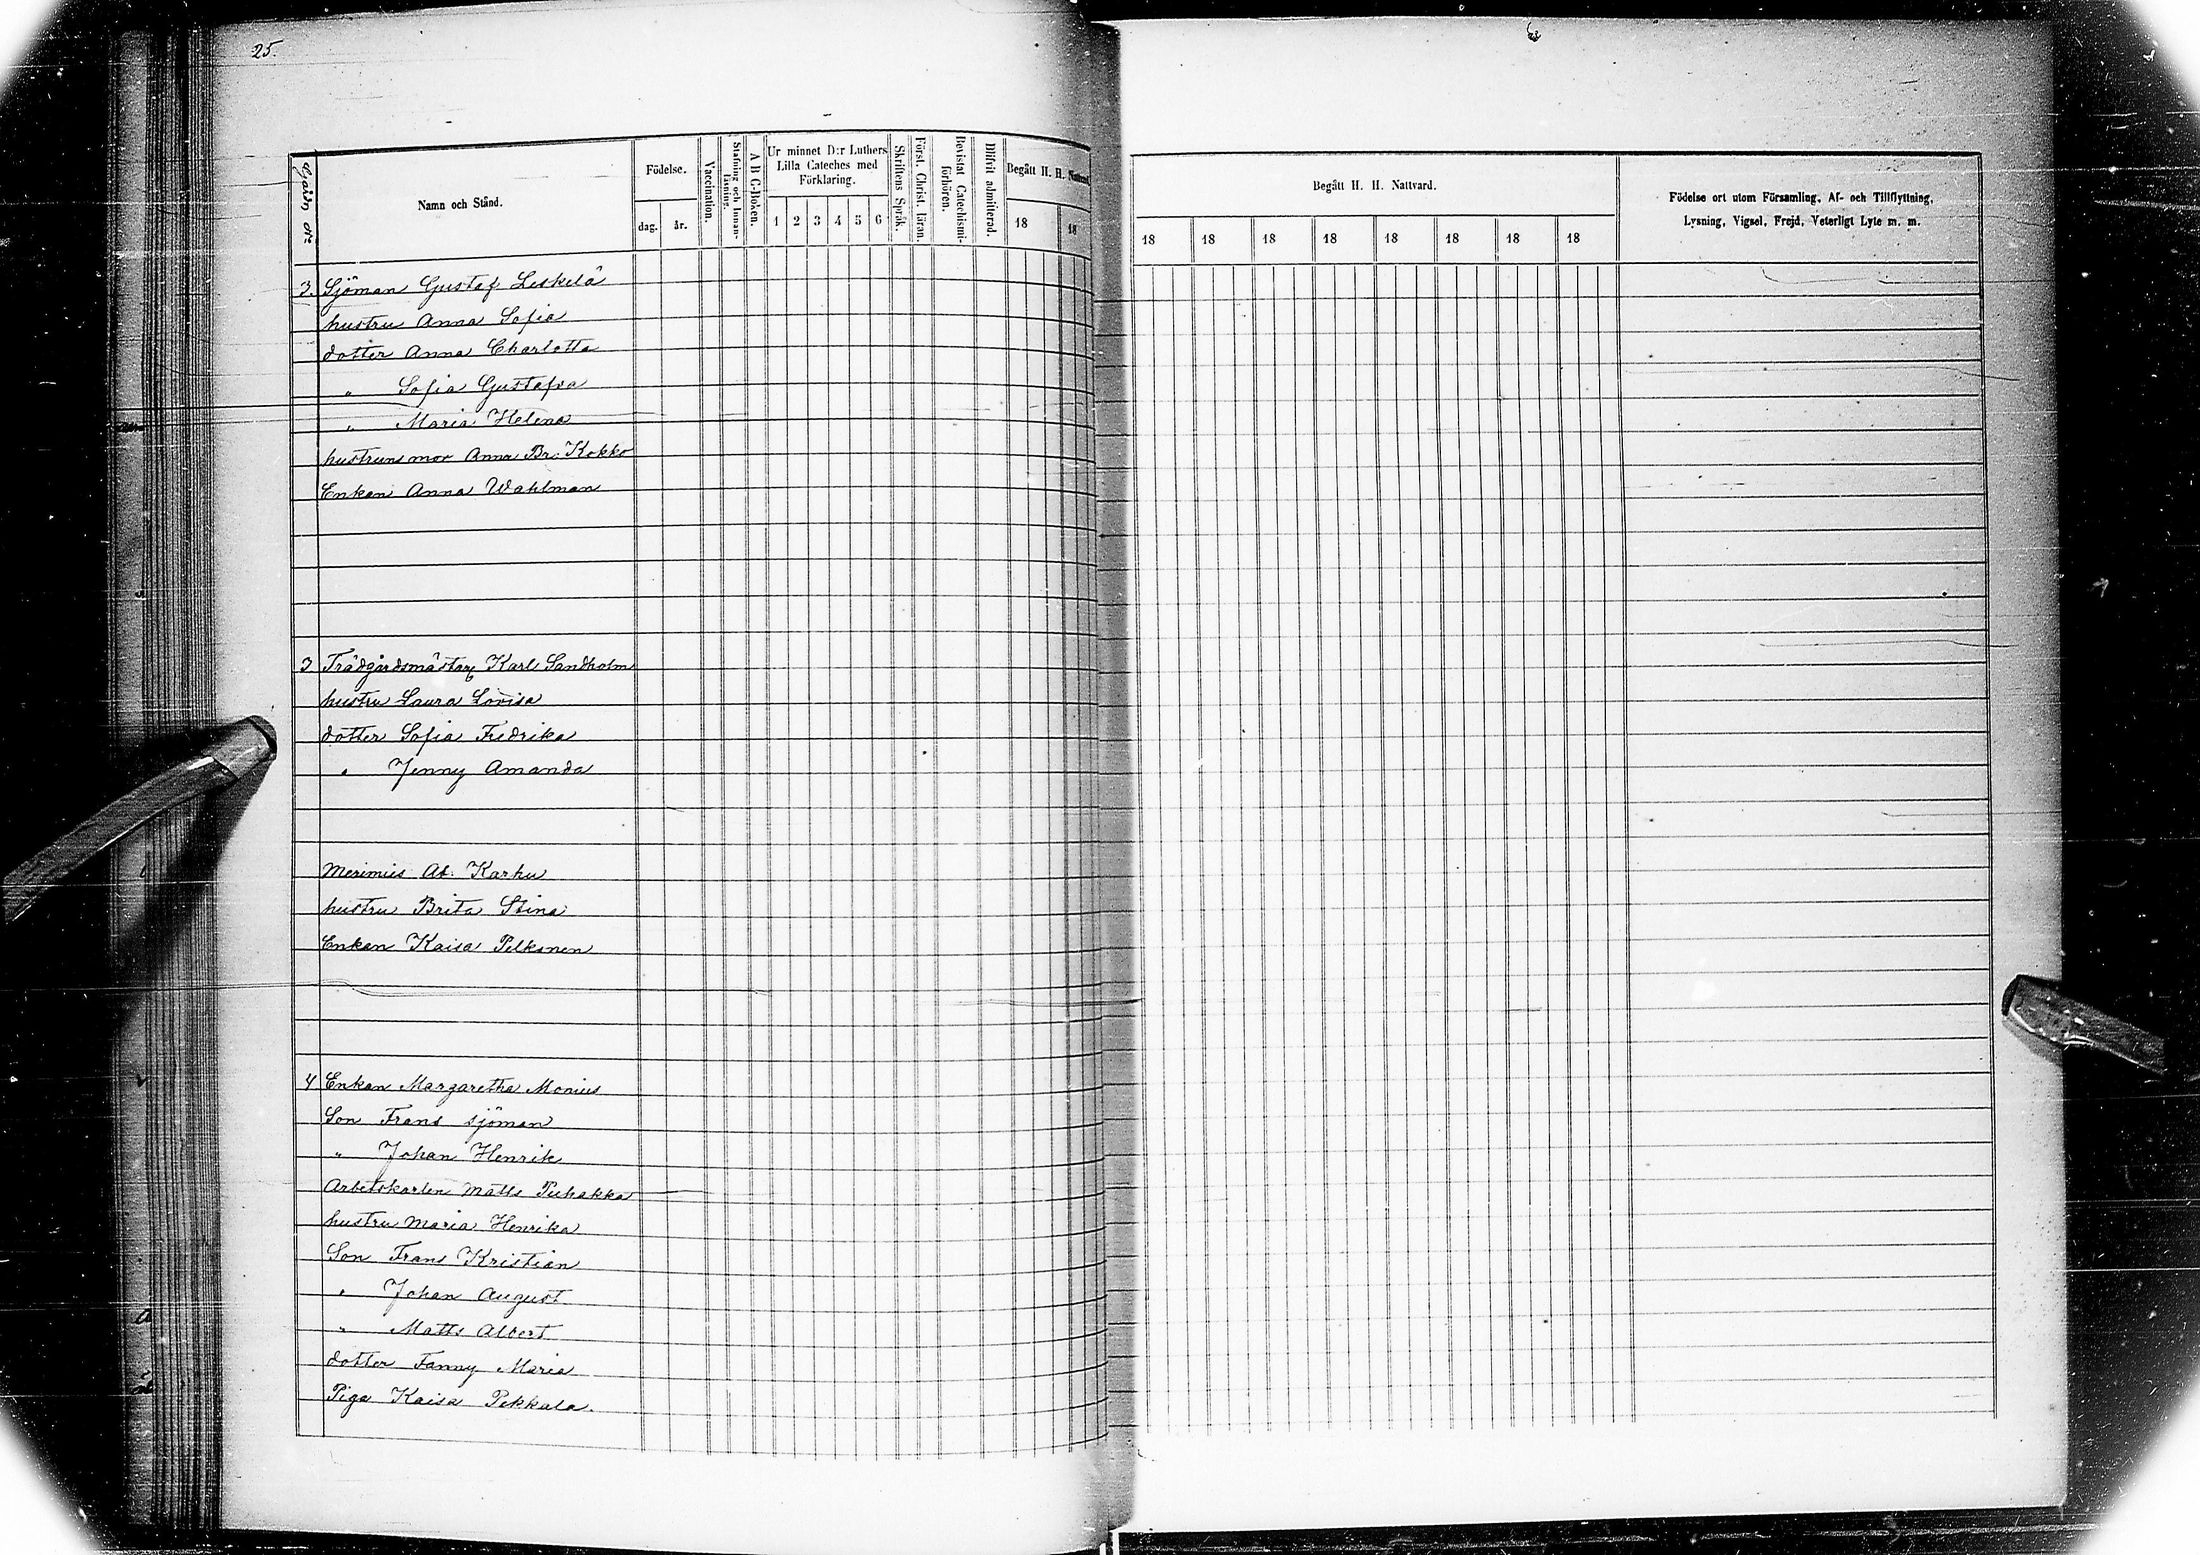 25.
Gård No
Namn och Stånd.
Födelse.
dag.
år.
Vaccination.
Stafning och Innanläsning.
A B C-Boken.
Ur minnet D:r Luthers
Lilla Cateches med
Förklaring.
1 2 3 4 5 6
Skriftens Språk.
Först. Christ. läran.
Bevistat Catechismiförhören.
Blifvit admitterad.
Begått H. H. Nattvard.
18 18
Begått H. H. Nattvard.
18 18 18 18 18 18 18 18
Födelse ort utom Församling, Af- och Tillflyttning,
Lysning, Vigsel, Frejd, Veterligt Lyte m. m.
3. Sjöman Gustaf Leskelä
hustru Anna Sofia
dotter Anna Charlotta
" Sofia Gustafva
" Maria Helena
hustruns mor Anna Br. Kokko
Enkan Anna Wahlman
3 Trädgårdsmästar Karl Sandholm
hustru Laura Lovisa
dotter Sofia Fredrika
" Jenny Amanda
Merimies Ab. Karhu
hustru Brita Stina
Enkan Kaisa Pelkonen
4 Enkan Margaretha Monius
Son Frans sjöman
" Johan Henrik
Arbetskarlen Matts Puhakka
hustru Maria Henrika
Son Frans Kristian
" Johan August
" Matts Albert
dotter Fanny Maria
Piga Kaisa Pekkala.